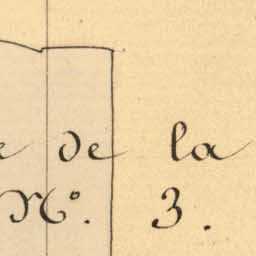 de la
N.º 3.